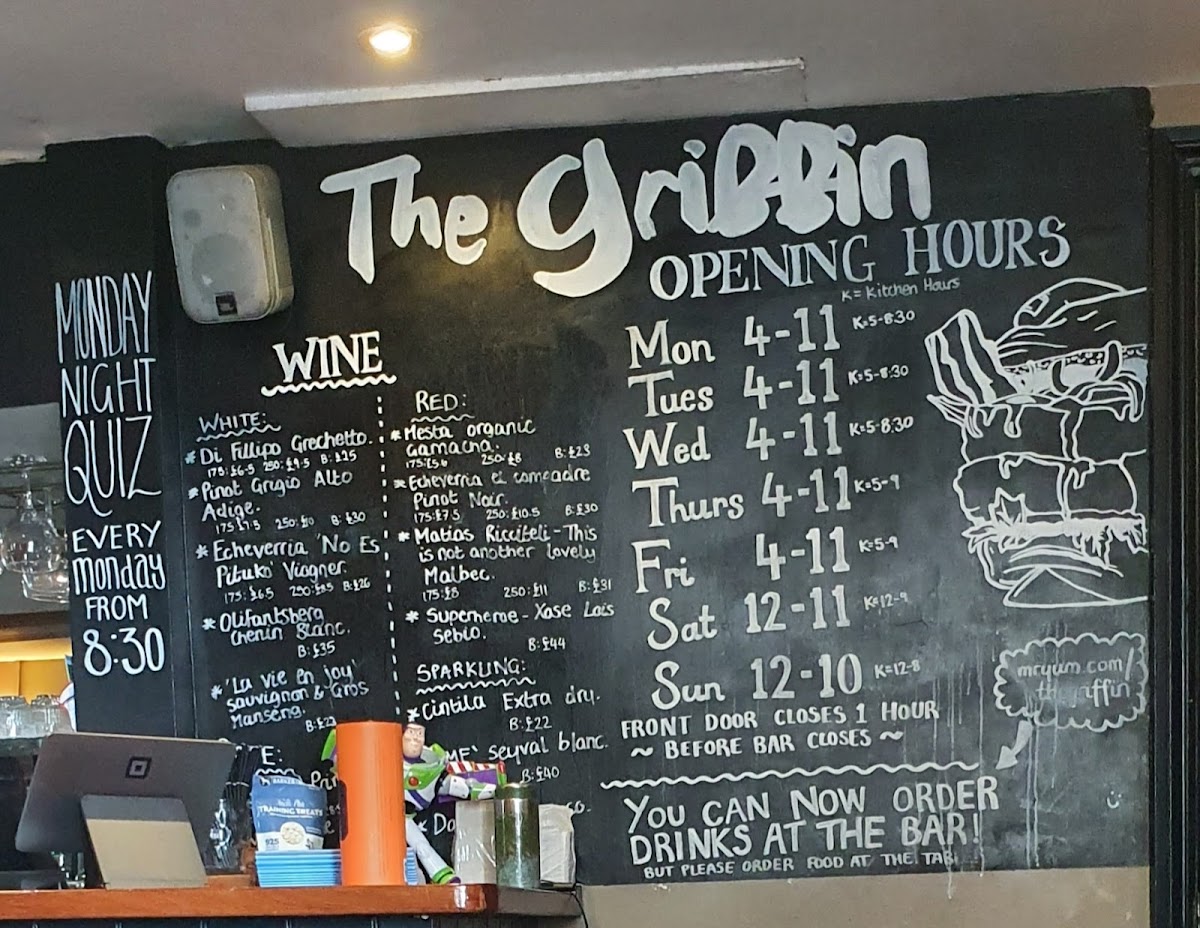 The Griffin
OPENING HOURS
K= Kitchen Hours
Mon 4-11 K=5-8:30
Tues 4-11 K=5-8:30
Wed 4-11 K=5-8:30
Thurs 4-11 K=5-9
Fri 4-11 K=5-9
Sat 12-11 K=12-9
Sun 12-10 K=12-8
FRONT DOOR CLOSES 1 HOUR
~ BEFORE BAR CLOSES ~
YOU CAN NOW ORDER
DRINKS AT THE BAR!
BUT PLEASE ORDER FOOD AT THE
mryum.com/
thegriffin
MONDAY
NIGHT
QUIZ
EVERY
monday
FROM
8:30
WINE
WHITE:
* Di Fillipo Grechetto.
175:£6.5 250:£9.5 B:£25
* Pinot Grigio Alto
Adige.
175:£7.5 250:£10 B:£30
* Echeverria 'No Es
Pituko' Viogner.
175:£6.5 250:£8.5 B:£26
* Olifantsberg
Chenin Blanc.
B:£35
* 'La vie en joy'
sauvignon & Gros
Manseng.
B:£23
RED:
* Mesta organic
Garnacha.
175:£5.6 250:£8 B:£23
* Echeverria el comeadre
Pinot Noir.
175:£7.5 250:£10.5 B:£30
* Matias Ricciteli - This
is not another lovely
Malbec.
175:£8 250:£11 B:£31
* Superheroe - Xose Lois
Sebio.
B:£44
SPARKLING:
* Cintila Extra dry.
B:£22
seyval blanc.
B:£40
TRAINING TREATS